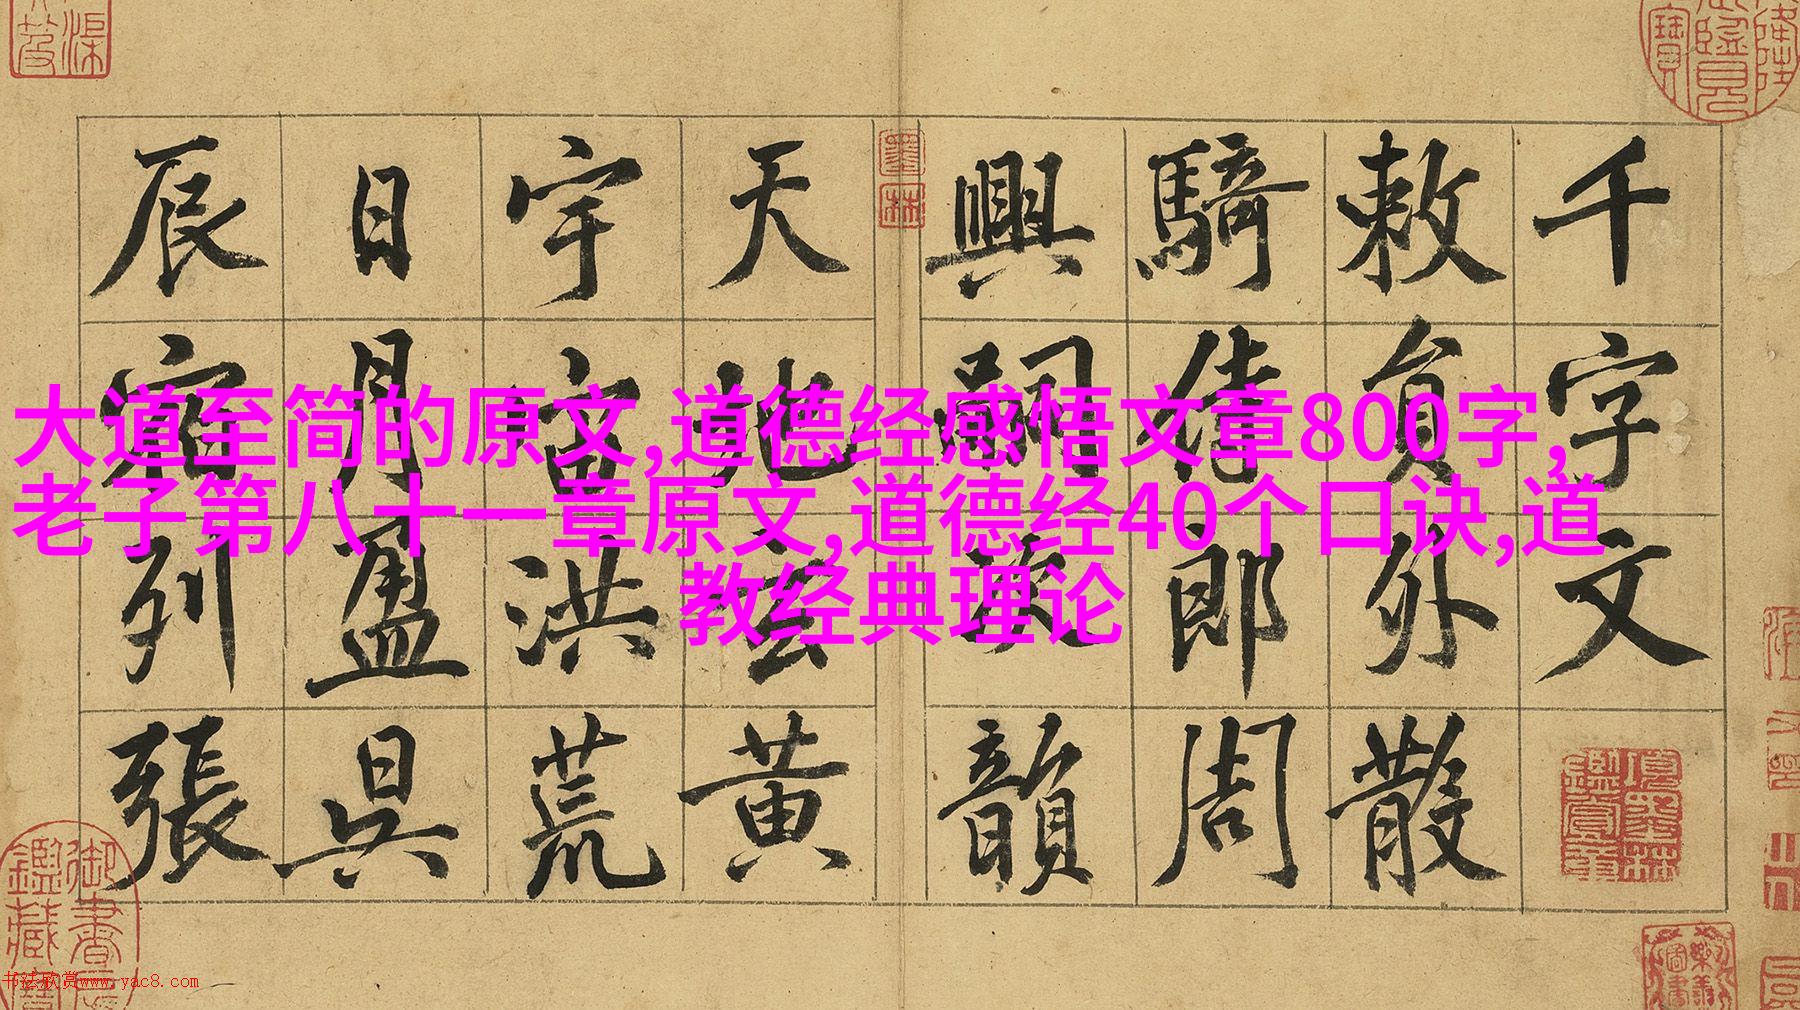 千字文
敕員外散
騎侍郎周
興嗣次韻
天地玄黄
宇宙洪荒
日月盈昃
辰宿列張
大道至简的原文,道德经感悟文章800字,
老子第八十一章原文,道德经40个口诀,道
教经典理论
墨林
項墨林鑑賞章
书法欣赏www.yac8.com